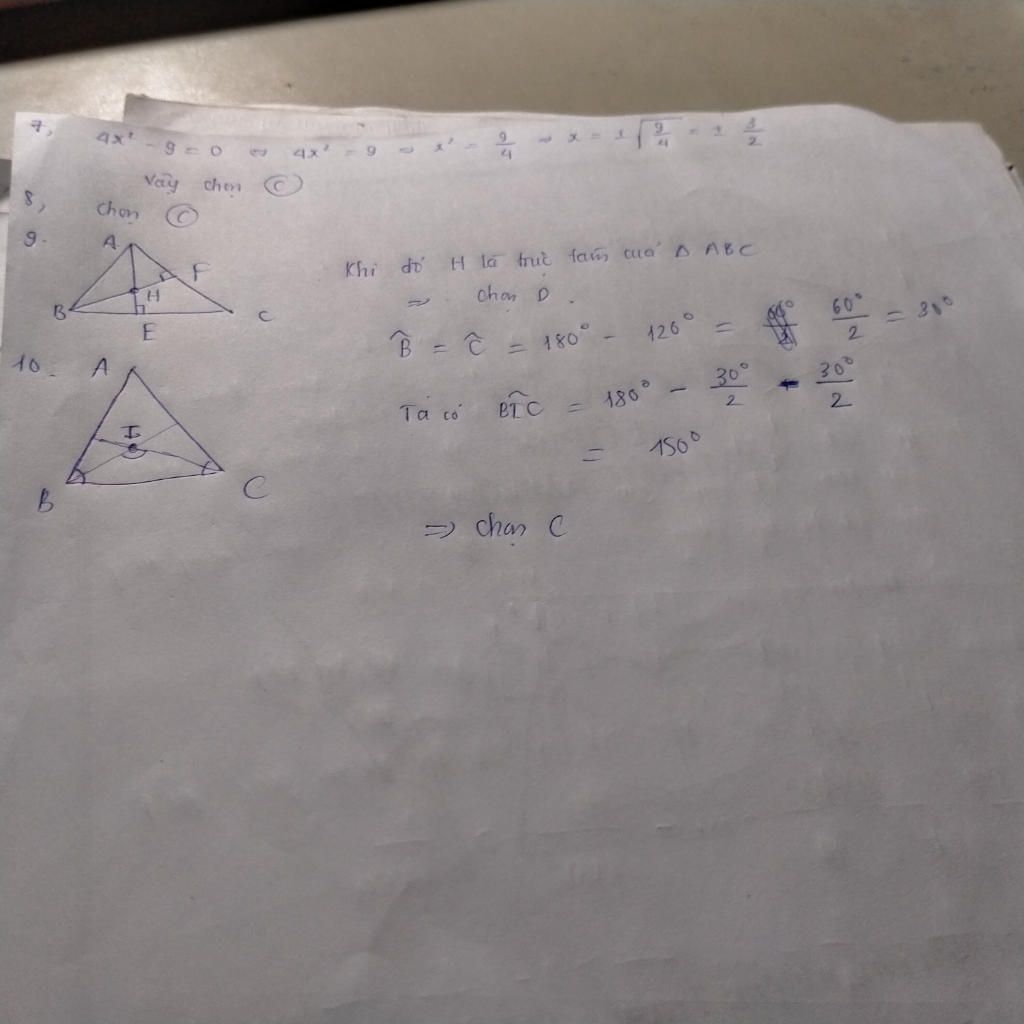 7, 4x² - 9 = 0 ⇔ 4x² = 9 ⇒ x² = 9/4 ⇒ x = ±√(9/4) = ± 3/2
Vậy chọn Ⓒ
8, chọn Ⓒ
9.
A
F
H
B
C
E
Khi đó H là trực tâm cuả Δ ABC
⇒ chọn D.
10.
A
I
B
C
B̂ = Ĉ = 180° - 120° = 60°/2 = 30°
Ta có BIC = 180° - 30°/2 - 30°/2
= 150°
⇒ chọn C